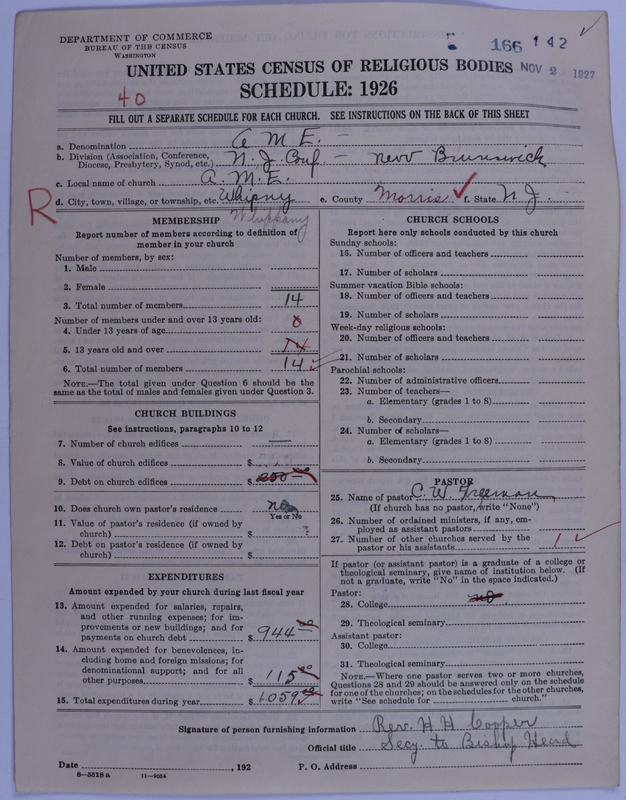 DEPARTMENT OF COMMERCE
BUREAU OF THE CENSUS
WASHINGTON
166 142
NOV 2 1927
UNITED STATES CENSUS OF RELIGIOUS BODIES
SCHEDULE: 1926
40
FILL OUT A SEPARATE SCHEDULE FOR EACH CHURCH. SEE INSTRUCTIONS ON THE BACK OF THIS SHEET
a. Denomination A. M. E. -
b. Division (Association, Conference, Diocese, Presbytery, Synod, etc.) N. J. Conf - New Brunswick
c. Local name of church A. M. E.
d. City, town, village, or township, etc. Whipny e. County Morris f. State N J.
R
Whippany
MEMBERSHIP
Report number of members according to definition of
member in your church
Number of members, by sex:
1. Male
2. Female
3. Total number of members 14
Number of members under and over 13 years old:
4. Under 13 years of age 0
5. 13 years old and over 14
6. Total number of members 14
NOTE.—The total given under Question 6 should be the
same as the total of males and females given under Question 3.
CHURCH BUILDINGS
See instructions, paragraphs 10 to 12
7. Number of church edifices —
8. Value of church edifices $
9. Debt on church edifices $
10. Does church own pastor's residence no
Yes or No
11. Value of pastor's residence (if owned by
church) $ ?
12. Debt on pastor's residence (if owned by
church) $
EXPENDITURES
Amount expended by your church during last fiscal year
13. Amount expended for salaries, repairs,
and other running expenses; for im-
provements or new buildings; and for
payments on church debt $ 944
14. Amount expended for benevolences, in-
cluding home and foreign missions; for
denominational support; and for all
other purposes $ 115
15. Total expenditures during year $ 1059
CHURCH SCHOOLS
Report here only schools conducted by this church
Sunday schools:
16. Number of officers and teachers
17. Number of scholars
Summer vacation Bible schools:
18. Number of officers and teachers
19. Number of scholars
Week-day religious schools:
20. Number of officers and teachers
21. Number of scholars
Parochial schools:
22. Number of administrative officers
23. Number of teachers—
a. Elementary (grades 1 to 8)
b. Secondary
24. Number of scholars—
a. Elementary (grades 1 to 8)
b. Secondary
PASTOR
25. Name of pastor C. W. Freeman
(If church has no pastor, write "None")
26. Number of ordained ministers, if any, em-
ployed as assistant pastors
27. Number of other churches served by the
pastor or his assistants 1
If pastor (or assistant pastor) is a graduate of a college or
theological seminary, give name of institution below. (If
not a graduate, write "No" in the space indicated.)
Pastor:
28. College no
29. Theological seminary
Assistant pastor:
30. College
31. Theological seminary
NOTE.—Where one pastor serves two or more churches,
Questions 28 and 29 should be answered only on the schedule
for one of the churches; on the schedules for the other churches,
write "See schedule for church."
Signature of person furnishing information Rev. H H Cooper
Official title Secy. to Bishop Heard
Date , 192 P. O. Address
8—5518 a 11—9054